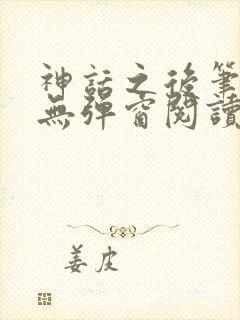 神話之後筆
無彈窗閱讀
姜皮